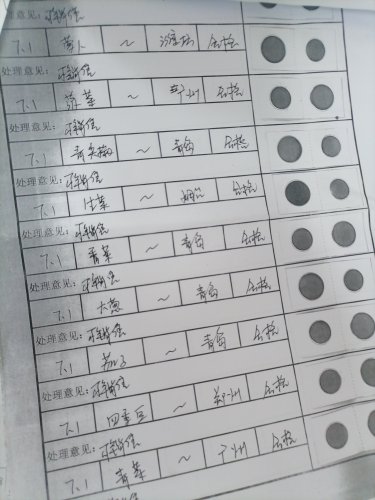 处理意见：准销售
7.1 ~ 合格
处理意见：准销售
7.1 菠菜 ~ 郑州 合格
处理意见：准销售
7.1 ~ 青岛 合格
处理意见：准销售
7.1 生菜 ~ 合格
处理意见：准销售
7.1 青菜 ~ 青岛 合格
处理意见：准销售
7.1 大葱 ~ 青岛 合格
处理意见：准销售
7.1 茄子 ~ 青岛 合格
处理意见：准销售
7.1 四季豆 ~ 郑州 合格
处理意见：准销售
7.1 青菜 ~ 广州 合格